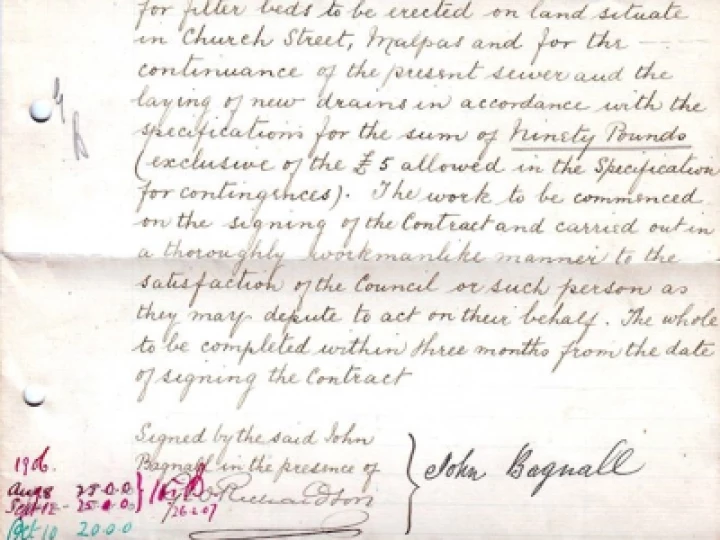 for filter beds to be erected on land situate
in Church Street, Malpas and for the
continuance of the present sewer and the
laying of new drains in accordance with the
specifications for the sum of Ninety Pounds
(exclusive of the £5 allowed in the Specification
for contingences). The work to be commenced
on the signing of the Contract and carried out in
a thoroughly workmanlike manner to the
satisfaction of the Council or such person as
they may depute to act on their behalf. The whole
to be completed within three months from the date
of signing the Contract
Signed by the said John
Bagnall in the presence of
Richardson
John Bagnall
1906.
Aug 8 25.0.0
Sept 12 - 25.0.0
26.2.07
Oct 10 20.0.0